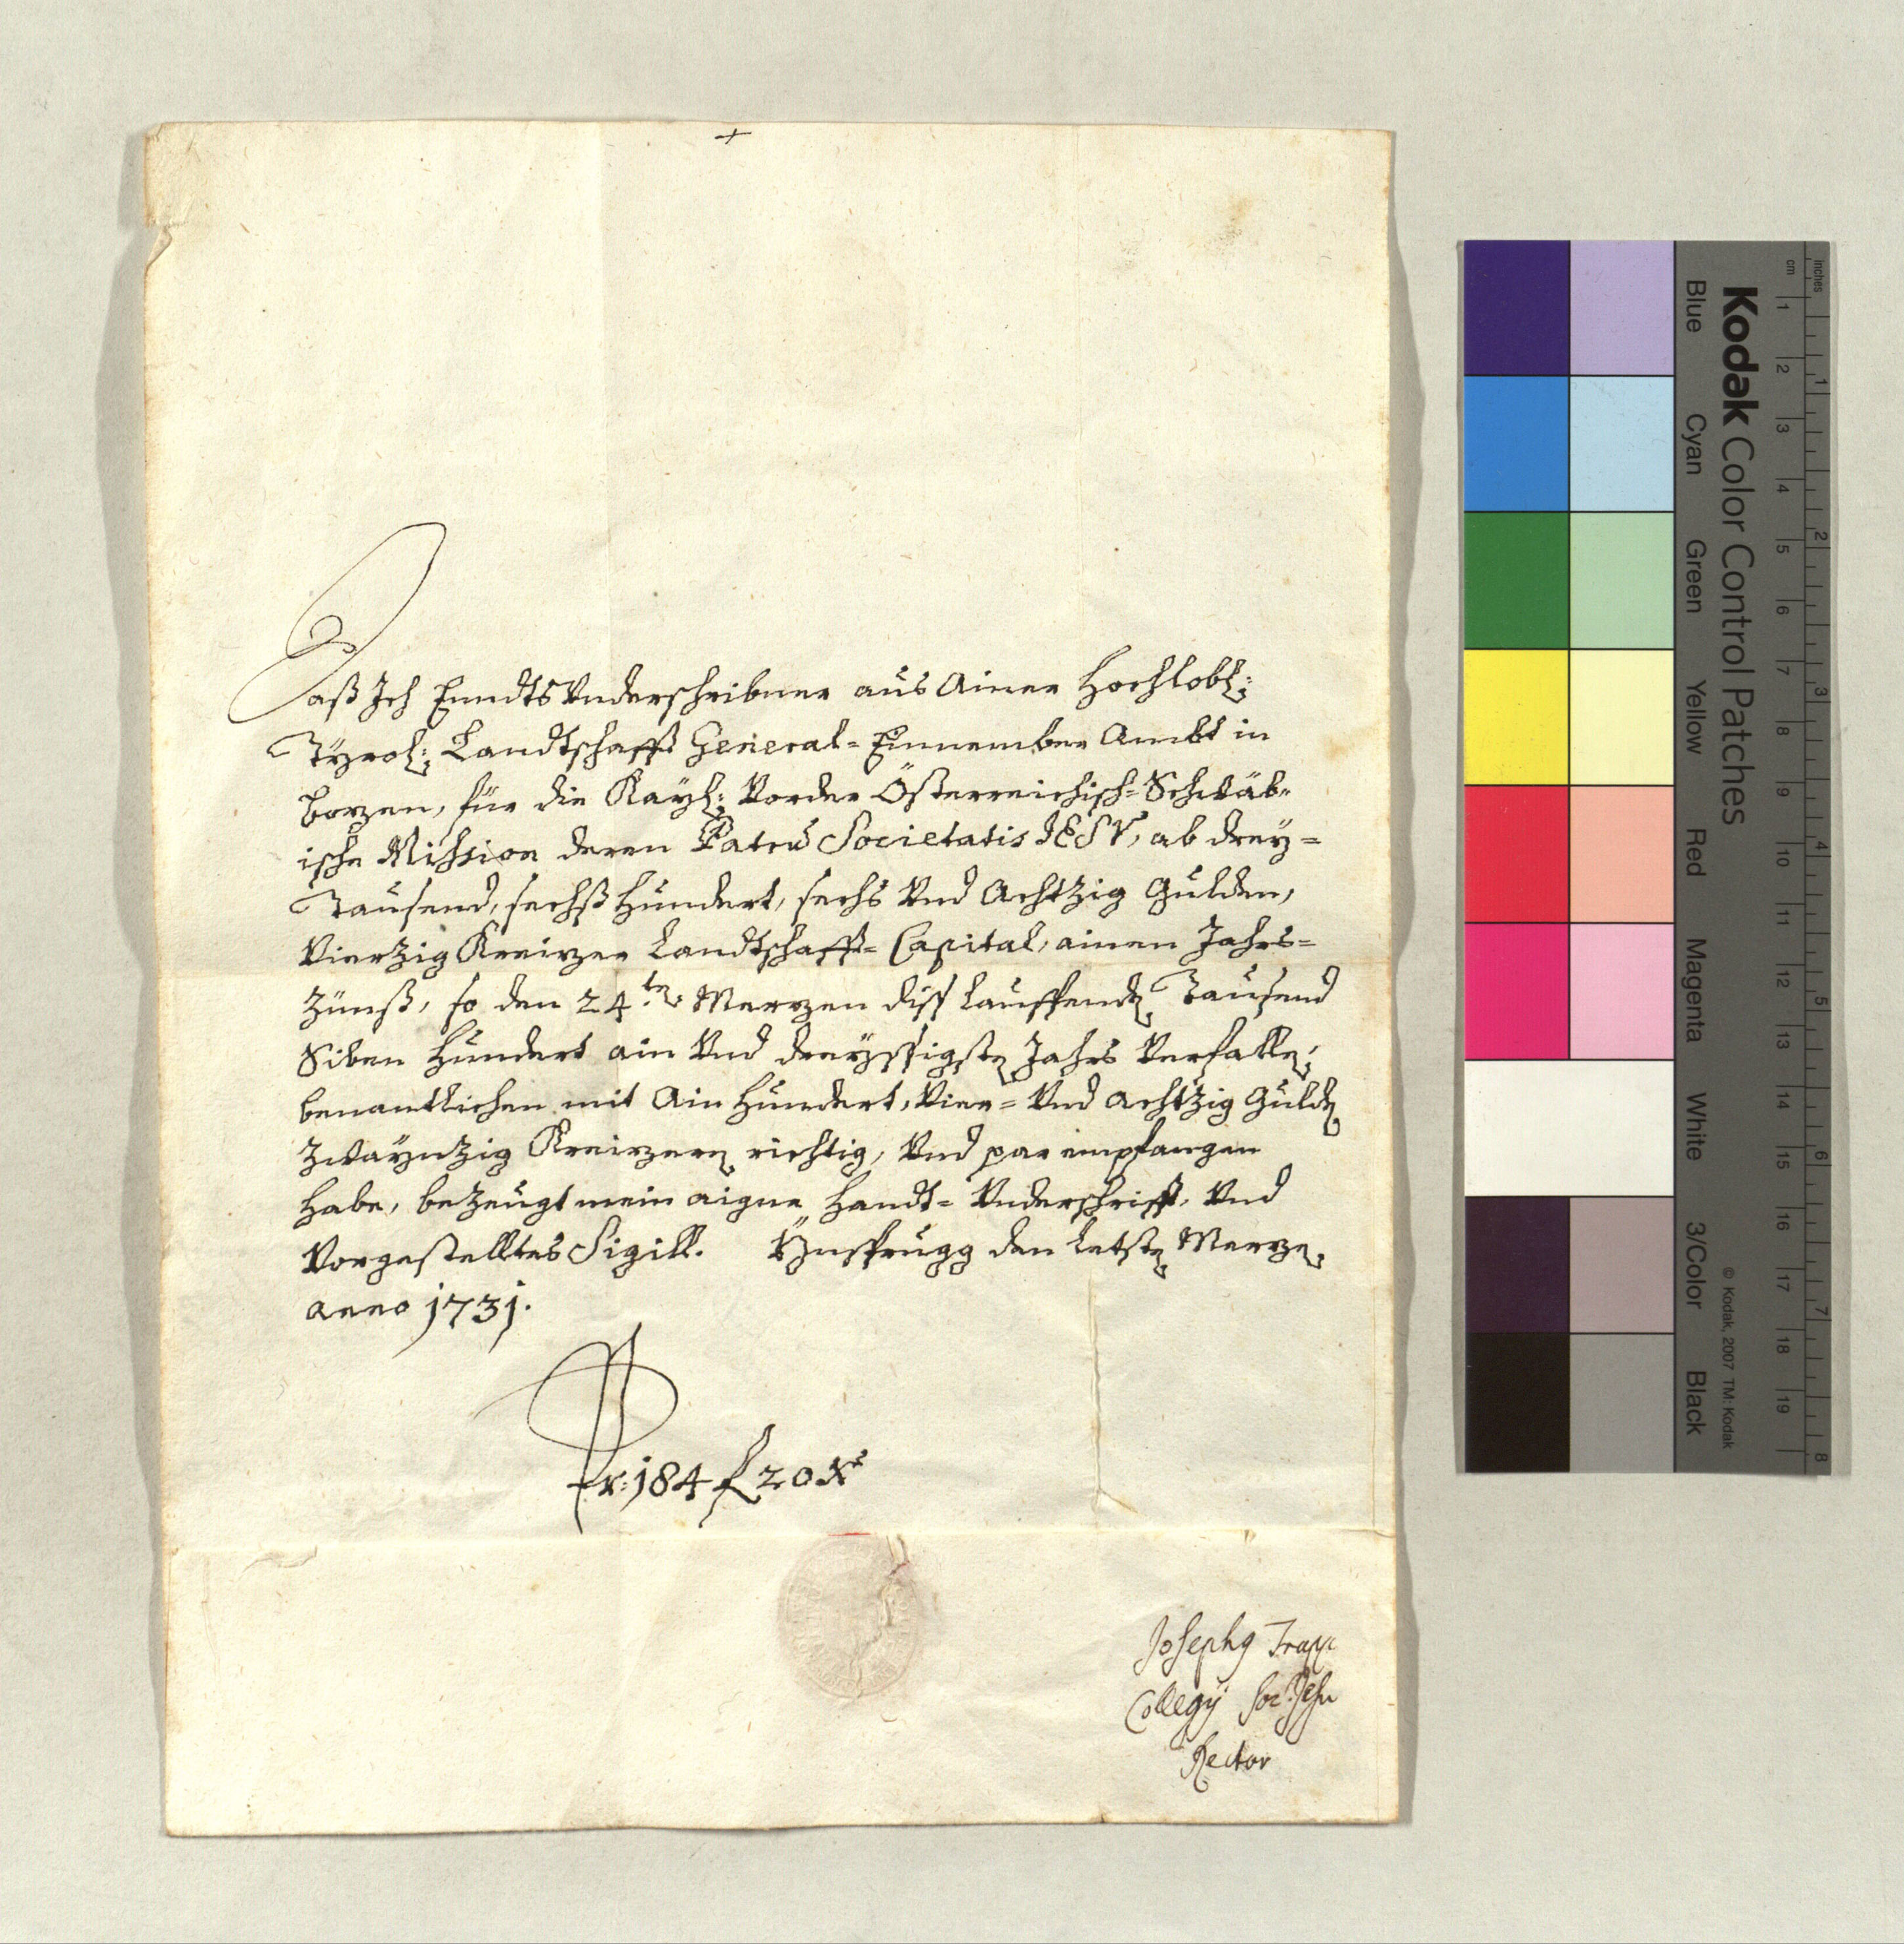 +
Daß Ich Enndts Underschribner aus Ainer Hochlobl:
Tÿrol: Landtschafft General= Einnember Ambt in
bozen, für die Kaÿl: Vorder Österreichisch= Schwäb=
ische Mission deren Patrũ Societatis IESV, ab dreÿ=
Tausend, sechß Hundert, sechs Und Achtzig Gulden,
Vierzig Kreizer Landtschafft= Capital, ainen Jahrs=
Zünß, so den 24.ten Merzen diss Lauffenden Tausend
Siben Hundert ain Und dreÿssigsten Jahrs Verfallen,
benamtlichen mit Ain Hundert, Vier= Und achtzig Gulden
Zwaÿnzig Kreizeren richtig, Und par empfangen
habe, beZeugt mein aigne Handt= Underschrifft, Und
Vorgestelltes Sigill. Ÿnsprugg den Letsten Merzen.
anno 1731.
Pr: 184 f 20 xr
Josephus Trapp
Collegij Soc: Jesu
Rector
Kodak Color Control Patches
Blue Cyan Green Yellow Red Magenta White 3/Color Black
© Kodak, 2007 TM: Kodak
cm 1 2 3 4 5 6 7 8 9 10 11 12 13 14 15 16 17 18 19
inches 1 2 3 4 5 6 7 8